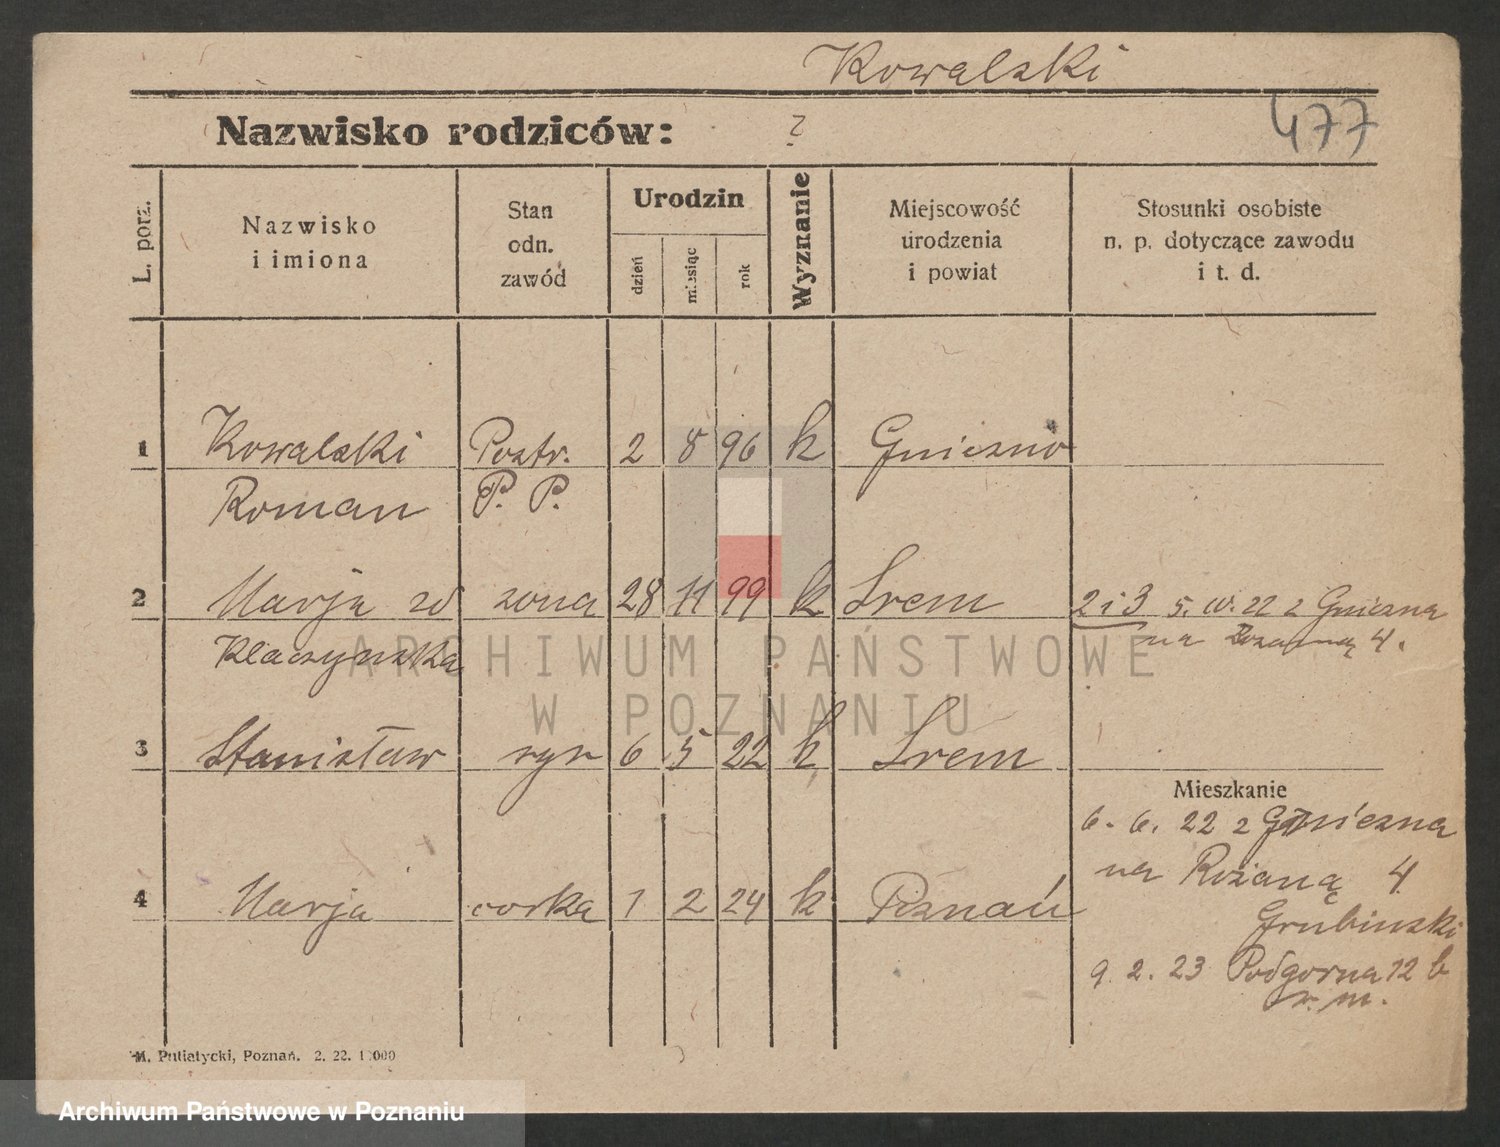 Kowalski
477
Nazwisko rodziców: ?
L. porz.
Nazwisko
i imiona
Stan
odn.
zawód
Urodzin
dzień
miesiąc
rok
Wyznanie
Miejscowość
urodzenia
i powiat
Stosunki osobiste
n. p. dotyczące zawodu
i t. d.
1 Kowalski Postr. 2 8 96 k Gniezno
Roman P. P.
2 Marja zd żona 28 11 99 k Srem 2 i 3 5. IV. 22 z Gniezna
Klaczynska na 4.
3 Stanisław syn 6 5 22 k Srem
Mieszkanie
6. 6. 22 z Gniezna
na Rożaną 4
4 Marja corka 1 2 24 k Poznań
Grubinski
9. 2. 23 Podgorna 12 b
r. m.
M. Putiatycki, Poznań. 2. 22. 1000
ARCHIWUM PAŃSTWOWE
W POZNANIU
Archiwum Państwowe w Poznaniu